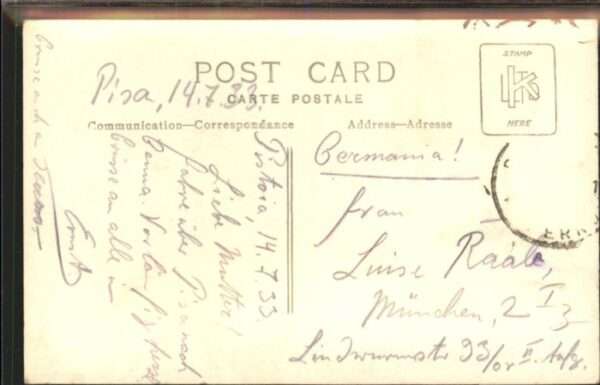 POST CARD
CARTE POSTALE
Communication—Correspondence
Address—Adresse
STAMP
HERE
Pisa, 14.7.33.
Pistoia, 14.7.33
Liebe Mutter!
fahre über Pisa nach
Genua. Vorläufig herz
Grüsse an alle in
Ernst
Germania!
Frau
Luise Raab,
München, 2
Lindwurmstr 33/or II. Aufg.